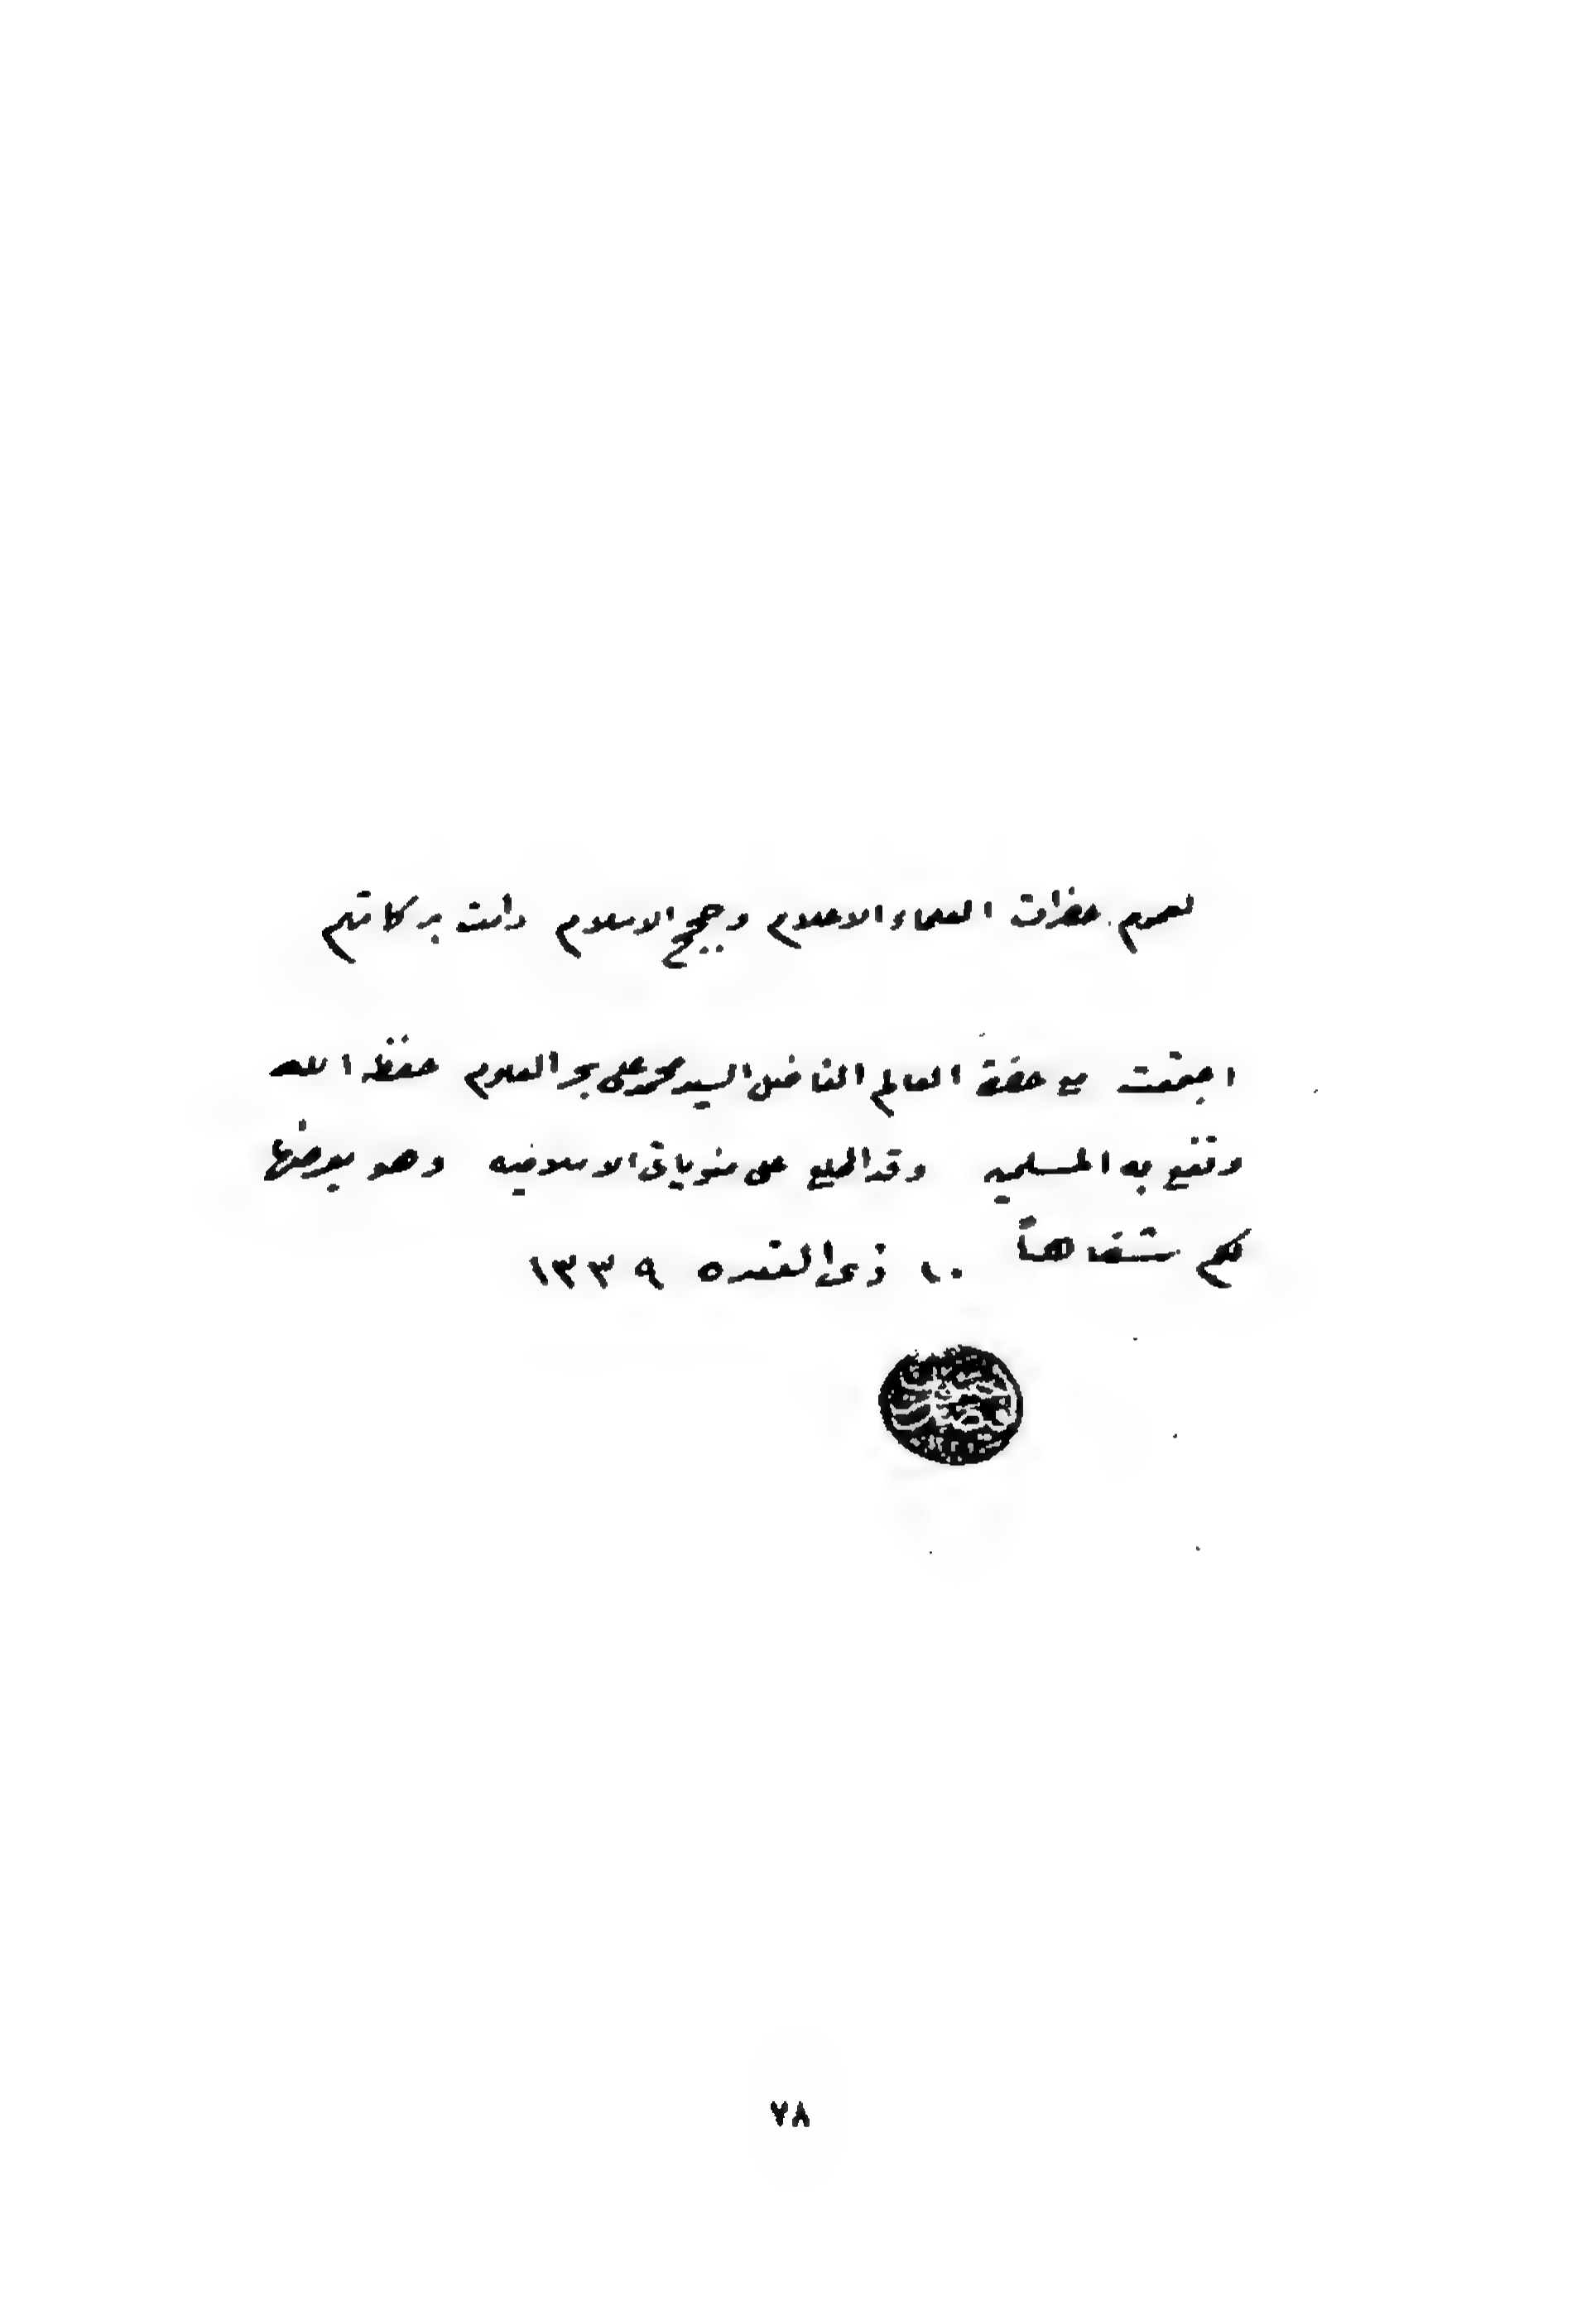 لعموم حضرات العلماء الاعلام وحجج الاسلام دامت بركاتهم
اجتمعت مع حضرة العالم الفاضل السيد محمد علي بحر العلوم حفظه الله
ونفع به المسلمين وقد اطلع على منوياتي الاصلاحيه وهو يعرضها
لكم شفاهاً ١٠ ذي القعده ١٣٣٩
٧٨